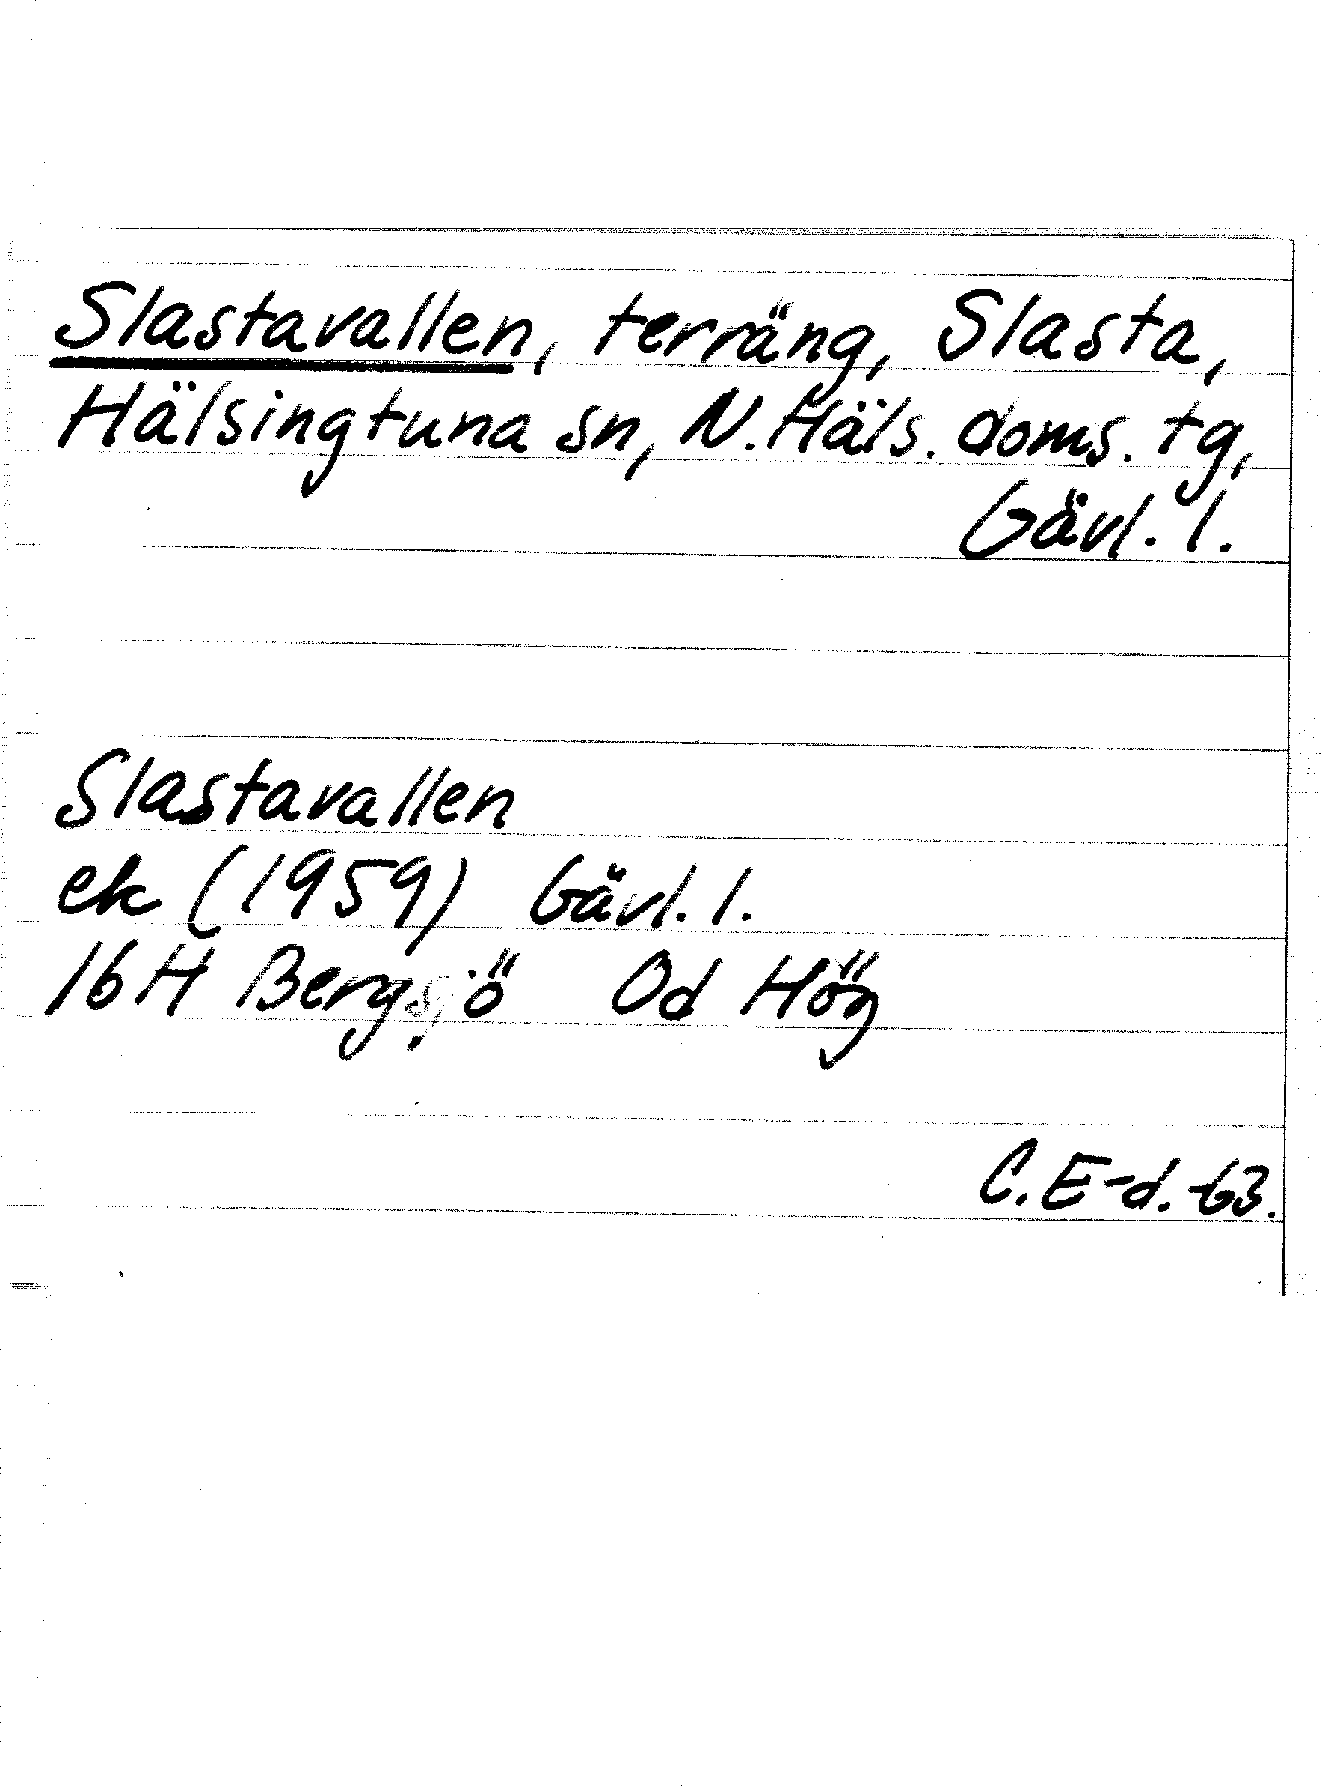 Slastavallen, terräng, Slasta,
Hälsingtuna sn, N. Häls. doms. tg,
Gävl. l.
Slastavallen
ek (1959) Gävl. l.
16H Bergsjö Od Hög
C. E-d. -63.